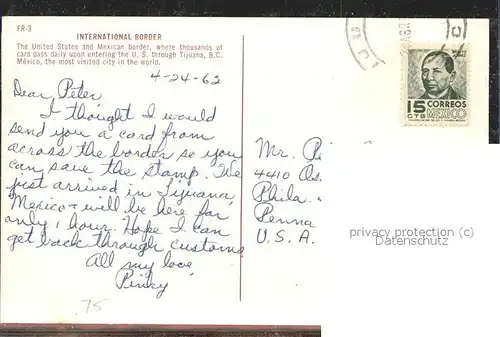 FR-3
INTERNATIONAL BORDER
The United States and Mexican border, where thousands of
cars pass daily upon entering the U. S. through Tijuana, B.C.
México, the most visited city in the world.
4-24-62
Dear Peter,
I thought I would
send you a card from
across the border so you
can save the stamp. I've
just arrived in Tijuana,
Mexico + will be here for
only 1 hour. Hope I can
get back through customs.
All my love,
Pinky
75
15
CTS
CORREOS
MEXICO
Mr.
4410
Phila.
Penna
U.S.A.
privacy protection (c)
Datenschutz